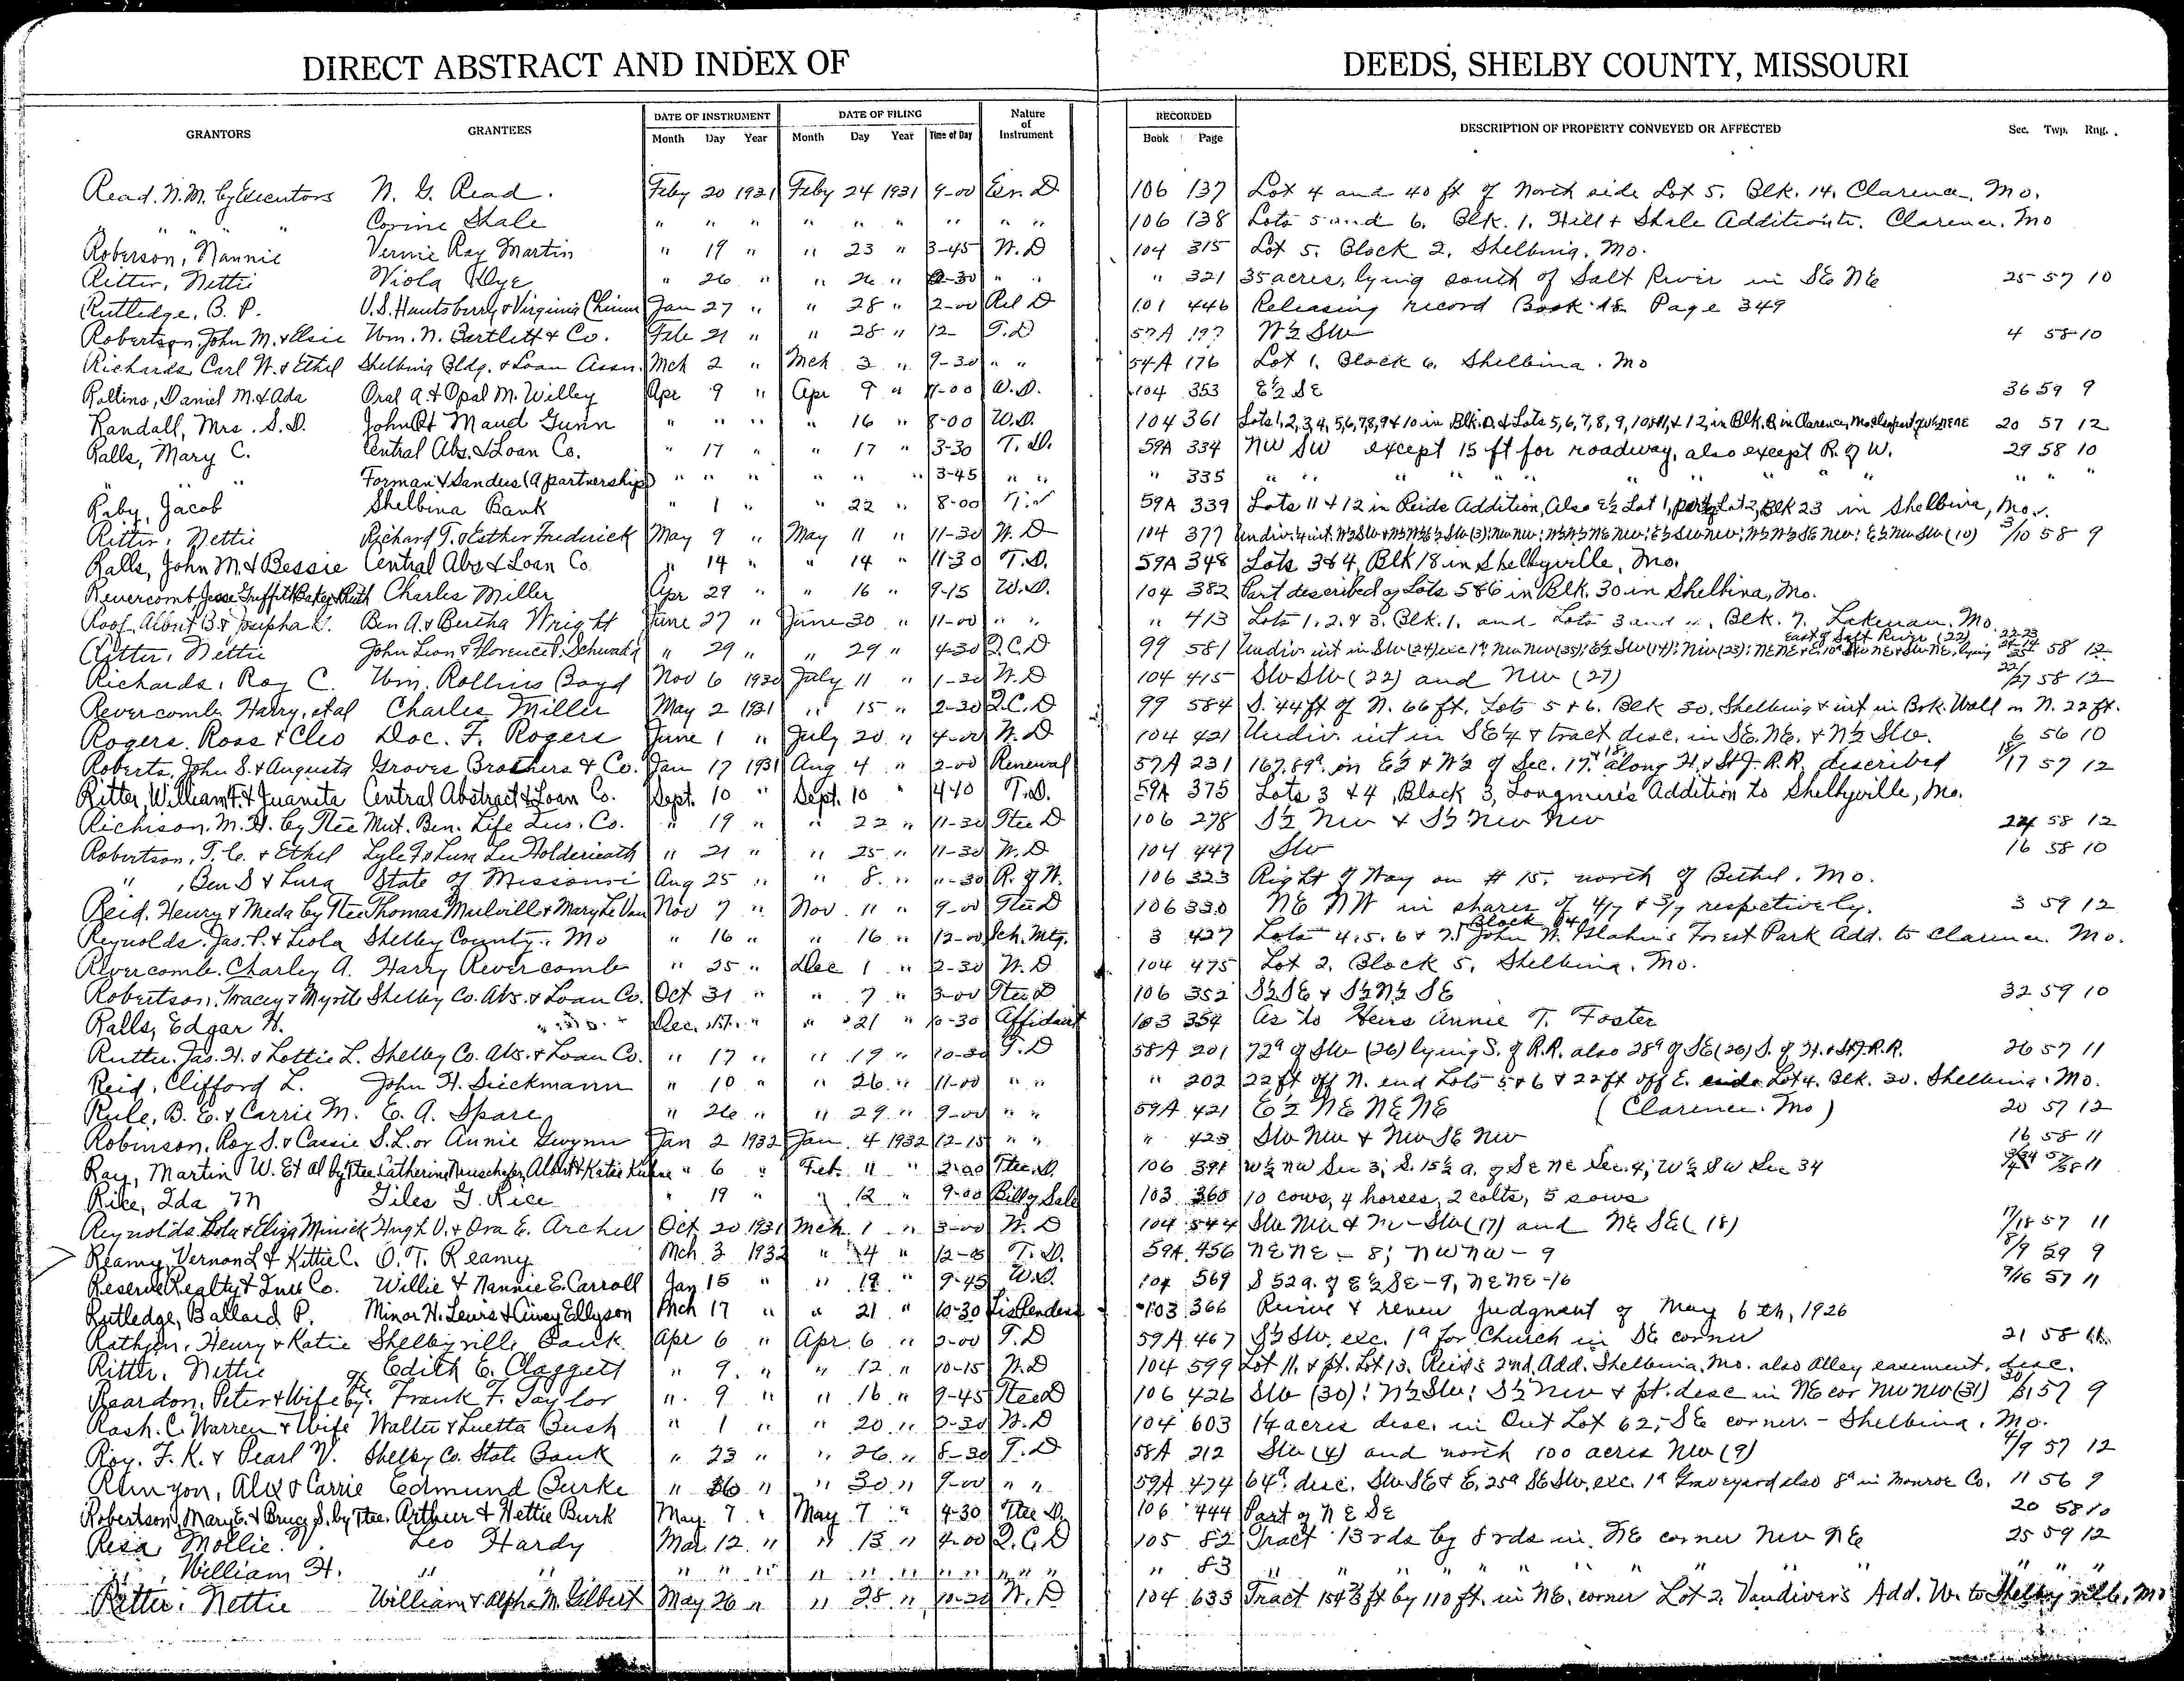 DIRECT ABSTRACT AND INDEX OF DEEDS, SHELBY COUNTY, MISSOURI
GRANTORS GRANTEES DATE OF INSTRUMENT DATE OF FILING Nature of Instrument RECORDED DESCRIPTION OF PROPERTY CONVEYED OR AFFECTED Sec. Twp. Rng.
Month Day Year Month Day Year Time of Day Book Page
Read. N.M. by Executors N. G. Read. Feby 20 1931 Feby 24 1931 9-00 Exr. D 106 137 Lot 4 and 40 ft of North side Lot 5. Blk. 14. Clarence. Mo.
" " " " Corine Shale " " " " " " " " " 106 138 Lots 5 and 6. Blk. 1. Hill & Shale Addition to. Clarence. Mo
Roberson, Nannie Vernie Ray Martin " 19 " " 23 " 3-45 W.D 104 315 Lot 5. Block 2. Shelbina. Mo.
Ritter, Nettie Viola Dye " 26 " " 26 " " " " 321 35 acres, lying south of Salt River in SE NE 25 57 10
Rutledge, B. P. Jan 27 " " 28 " 2-00 Rel D 101 446 Releasing record Book 18 Page 349
Robertson, John M. & Elsie Wm. N. Bartlett & Co. Feb 21 " " 28 " 12 T.D 57A W½ SW 4 58 10
Richards Carl W. & Ethel Shelbina Bldg. & Loan Assn. Mch 2 " Mch 3 " 9-30 " " 54A 176 Lot 1. Block 6. Shelbina. Mo
Rollins, Daniel M. & Ada Oral A. & Opal M. Willey Apr 9 " Apr 9 " W.D. 104 353 E½ SE 36 59 9
Randall, Mrs. S.D. Maud Gunn " " " " 16 " 8-00 W.D. 104 361 Lots 1,2,3,4,5,6,7,8,9 & 10 in Blk. & Lots 5,6,7,8,9,10,11, & 12 in Blk. in Clarence, Mo 20 57 12
Ralls, Mary C. Central Abs. & Loan Co. " 17 " " 17 " 3-30 T.D. 59A 334 NW SW except 15 ft for roadway, also except R. of W. 29 58 10
" " Forman & Sanders (A partnership) " " " " " " 3-45 " " " 335 " " " " " " " " "
Raby, Jacob Shelbina Bank " 1 " " 22 " 8-00 59A 339 Lots 11 & 12 in Reids Addition, Also E½ Lot 1, part Lot 2, Blk 23 in Shelbina, Mo.
Ritter, Nettie Richard T. & Esther Frederick May 9 " May 11 " 11-30 W.D 104 377 3/10 58 9
Ralls, John M. & Bessie Central Abs & Loan Co. " 14 " " 14 " 11-30 T.D. 59A 348 Lots 3 & 4, Blk 18 in Shelbyville, Mo.
Revercomb, Charles Miller Apr 29 " " 16 " 9-15 W.D. 104 382 Part described of Lots 5 & 6 in Blk. 30 in Shelbina, Mo.
Roof, Albert B & Josepha V. Ben A. & Bertha Wright June 27 " June 30 " 11-00 " " " 413 Lots 1.2. & 3. Blk. 1. and Lots 3 and 4. Blk. 7. Lakenan. Mo
East of Salt River (22) 22-23
Ritter, Nettie John Leon & Florence P. Schwada " 29 " " 29 " 4-30 Q.C.D 99 581 58 12
Richards, Roy C. Wm. Rollins Boyd Nov 6 1930 July 11 " 1-30 W.D 104 415 SW SW (22) and NW (27) 22/27 58 12
Revercomb Harry, et al Charles Miller May 2 1931 " 15 " 2-30 Q.C.D 99 584 S. 44 ft of N. 66 ft. Lots 5 & 6. Blk 30. Shelbina & int in Brk. Wall on N. 22 ft.
Rogers. Ross & Cleo Doc. F. Rogers June 1 " July 20 " 4-00 W.D 104 421 Undiv. int in SE¼ & tract desc. in SE. NE. & N½ SW. 6 56 10
Roberts, John S. & Augusta Groves Brothers & Co. Jan 17 1931 Aug 4 " 2-00 Renewal 57A 231 167.89a. in E½ & W½ of Sec. 17. along H. & St J. R.R. described 18/17 57 12
Ritter, William F. & Juanita Central Abstract & Loan Co. Sept. 10 " Sept. 10 " 4-40 T.D. 59A 375 Lots 3 & 4, Block 3, Longmire's Addition to Shelbyville, Mo.
Richison. M.H. by Ttee Mut. Ben. Life Ins. Co. " 19 " " 22 " 11-30 Ttee D 106 278 S½ NW & S½ NW NW 24 58 12
Robertson, T.C. & Ethel " 21 " " 25 " 11-30 W.D 104 447 SW 16 58 10
" , Ben S & Lura State of Missouri Aug 25 " " 8. " 11-30 R. of W. 106 323 Right of Way on # 15. north of Bethel. Mo.
Reid. Henry & Meda by Ttee Nov 7 " Nov. 11 " 9-00 Ttee D 106 330 NE NW in shares of 4/7 & 3/7 respectively. 3 59 12
Reynolds. Jas. P. & Leola Shelby County, Mo " 16 " " 16 " 12-00 Sch. Mtg. 3 427 Lots 4.5.6 & 7. Block 64 John W. Forest Park Add. to Clarence. Mo.
Revercomb. Charley A. Harry Revercomb " 25 " Dec 1 " 2-30 W.D 104 475 Lot 2. Block 5. Shelbina. Mo.
Robertson, Tracey & Myrtle Shelby Co. Abs. & Loan Co. Oct 31 " " 7 " 3-00 Ttee D 106 352 S½ SE & S½ N½ SE 32 59 10
Ralls, Edgar H. Dec. " " 21 " 10-30 Affidavit 103 354 As to Heirs Annie T. Foster
Rutter. Jas. H. & Lottie L. Shelby Co. Abs. & Loan Co. " 17 " " 19 " 10-30 T.D 58A 201 72a of SW (26) lying S. of R.R. also 28a of SE (26) S. of H. & St J. R.R. 26 57 11
Reid, Clifford L. John H. Dieckmann " 10 " " 26 " 11-00 " " " 202 22 ft off N. end Lots 5 & 6 & 22 ft off E. side Lot 4. Blk. 30. Shelbina. Mo.
Rule, B. E. & Carrie M. E. A. Spare " 26 " " 29 " 9-00 " " 59A 421 E½ NE NE NE (Clarence. Mo) 20 57 12
Robinson, Roy S. & Cassie S.L. or Annie Gwynn Jan 2 1932 Jan. 4 1932 12-15 " " " 423 SW NW & NW SE NW 16 58 11
Ray, Martin W. Et Al by Ttee " 6 " Feb. 11 " 2-00 Ttee. D. 106 391 W½ NW Sec 3; S. 15½ a. of SE NE Sec. 4; W½ SW Sec 34
Rice, Ida M Giles G. Rice " 19 " " 12 " 9-00 Bill of Sale 103 360 10 cows, 4 horses, 2 colts, 5 sows
Reynolds. Lola & Eliza Minick Hugh V. & Ora E. Archer Oct 20 1931 Mch. 1 " 3-00 W.D 104 544 SW NW & NW SW (17) and NE SE (18) 17/18 57 11
Reamy, Vernon L & Kittie C. O. T. Reamy Mch 3 1932 " 4 " T.D. 59A 456 NE NE - 8; NW NW - 9 8/9 59 9
Reserve Realty & Inv Co. Willie & Nannie E. Carroll Jan 15 " " " 9-45 W.D. 104 569 S 52a. of E½ SE - 9, NE NE - 16 9/16 57 11
Rutledge, Ballard P. Minor H. Lewis & Ellyson Mch 17 " " 21 " 10-30 Lis Pendens 103 366 Revive & renew judgment of May 6th, 1926
Rathjen, Henry & Katie Shelbyville Bank Apr 6 " Apr. 6 " T.D 59A 467 S½ SW. exc. 1a for Church in SE corner 21 58
Ritter, Nettie Edith E. Claggett " 9. " " 12 " 10-15 W.D 104 599 Lot 11. & pt. Lot 13. Reid's 2nd. Add. Shelbina. Mo. also Alley easement, desc.
Reardon, Peter & Wife by Ttee Frank F. Taylor " 9 " " 16 " 9-45 Ttee D 106 426 SW (30); N½ SW; S½ NW & pt. desc in NE cor NW NW (31) 30/31 57 9
Rash. C. Warren & Wife Walter & Luetta Bush " 1 " " 20 " W.D 104 603 1¼ acres desc. in Out Lot 62, SE corner. - Shelbina. Mo.
Roy. F. K. & Pearl V. Shelby Co. State Bank " 23 " " 26 " 8-30 T.D 58A 212 SW (4) and north 100 acres NW (9) 4/9 57 12
Runyon, Alex & Carrie Edmund Burke " " " 30 " 9-00 " " 59A 474 64a. desc. SW SE & E. 25a SE SW, exc. 1a Graveyard also 8a in Monroe Co. 11 56 9
Robertson, Mary E. & Bruce S. by Ttee. Arthur & Hettie Burk May. 7 " May 7 " 4-30 Ttee D. 106 444 Part of NE SE 20 58 10
Resa, Mollie V. Leo Hardy Mar. 12 " " 13 " 4-00 Q.C.D 105 82 Tract 13 rds by 8 rds in NE corner NW NE 25 59 12
" , William H. " " " " " " " " " " " " 83 " " " " " " " " " "
Ritter, Nettie William & Alpha M. Gilbert May 26 " " 28 " W.D 104 633 Tract by 110 ft. in NE. corner Lot 2, Vandiver's Add. W. to Shelbyville, Mo